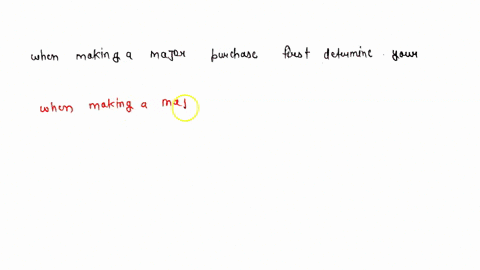 when making a major purchase first determine your
when making a maj